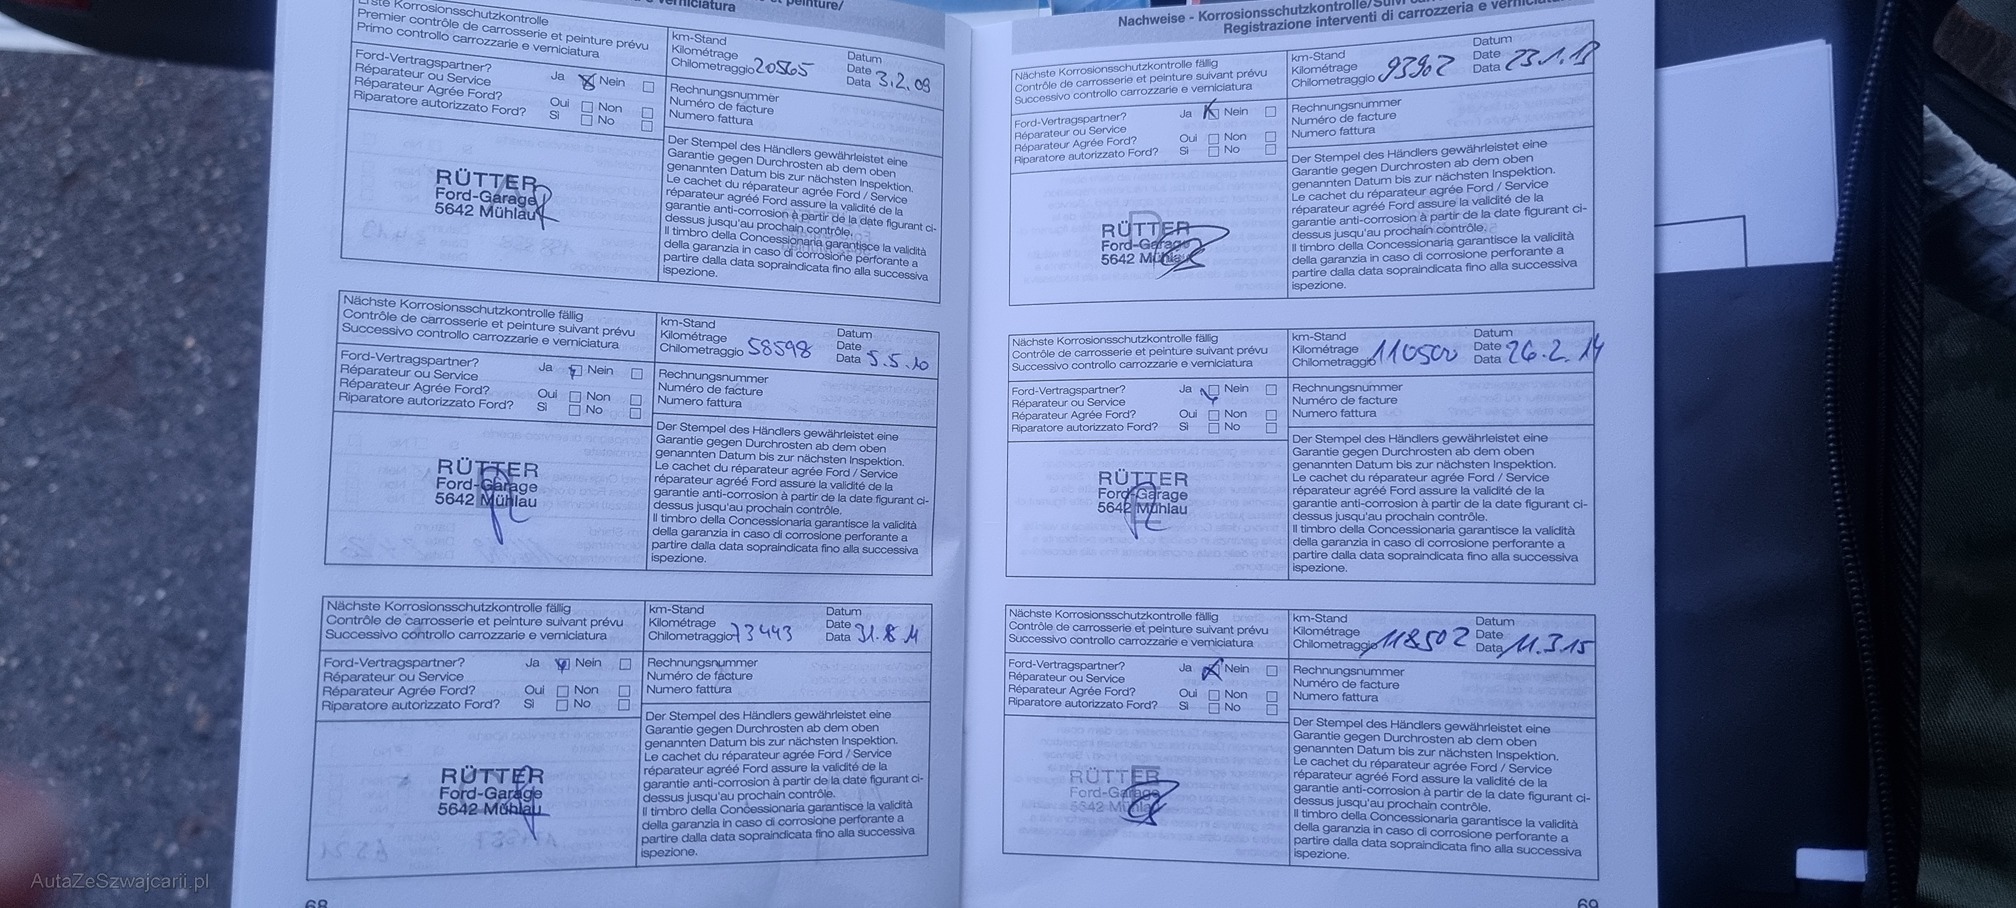 verniciatura
et peinture/
Erste Korrosionsschutzkontrolle
Premier contrôle de carrosserie et peinture prévu
Primo controllo carrozzarie e verniciatura
km-Stand
Kilométrage
Chilometraggio 20565
Datum
Date
Data 3.2.09
Ford-Vertragspartner?
Réparateur ou Service
Réparateur Agrée Ford?
Riparatore autorizzato Ford?
Ja Nein
Oui Non
Si No
Rechnungsnummer
Numéro de facture
Numero fattura
RÜTTER
Ford-Garage
5642 Mühlau
Der Stempel des Händlers gewährleistet eine
Garantie gegen Durchrosten ab dem oben
genannten Datum bis zur nächsten Inspektion.
Le cachet du réparateur agrée Ford / Service
réparateur agréé Ford assure la validité de la
garantie anti-corrosion à partir de la date figurant ci-
dessus jusqu'au prochain contrôle.
Il timbro della Concessionaria garantisce la validità
della garanzia in caso di corrosione perforante a
partire dalla data sopraindicata fino alla successiva
ispezione.
Nächste Korrosionsschutzkontrolle fällig
Contrôle de carrosserie et peinture suivant prévu
Successivo controllo carrozzarie e verniciatura
km-Stand
Kilométrage
Chilometraggio 58598
Datum
Date
Data 5.5.10
Ford-Vertragspartner?
Réparateur ou Service
Réparateur Agrée Ford?
Riparatore autorizzato Ford?
Ja Nein
Oui Non
Si No
Rechnungsnummer
Numéro de facture
Numero fattura
RÜTTER
Ford-Garage
5642 Mühlau
Der Stempel des Händlers gewährleistet eine
Garantie gegen Durchrosten ab dem oben
genannten Datum bis zur nächsten Inspektion.
Le cachet du réparateur agrée Ford / Service
réparateur agréé Ford assure la validité de la
garantie anti-corrosion à partir de la date figurant ci-
dessus jusqu'au prochain contrôle.
Il timbro della Concessionaria garantisce la validità
della garanzia in caso di corrosione perforante a
partire dalla data sopraindicata fino alla successiva
ispezione.
Nächste Korrosionsschutzkontrolle fällig
Contrôle de carrosserie et peinture suivant prévu
Successivo controllo carrozzarie e verniciatura
km-Stand
Kilométrage
Chilometraggio 73443
Datum
Date
Data 31.8.11
Ford-Vertragspartner?
Réparateur ou Service
Réparateur Agrée Ford?
Riparatore autorizzato Ford?
Ja Nein
Oui Non
Si No
Rechnungsnummer
Numéro de facture
Numero fattura
RÜTTER
Ford-Garage
5642 Mühlau
Der Stempel des Händlers gewährleistet eine
Garantie gegen Durchrosten ab dem oben
genannten Datum bis zur nächsten Inspektion.
Le cachet du réparateur agrée Ford / Service
réparateur agréé Ford assure la validité de la
garantie anti-corrosion à partir de la date figurant ci-
dessus jusqu'au prochain contrôle.
Il timbro della Concessionaria garantisce la validità
della garanzia in caso di corrosione perforante a
partire dalla data sopraindicata fino alla successiva
ispezione.
68
Nachweise - Korrosionsschutzkontrolle/Suivi
Registrazione interventi di carrozzeria e
Nächste Korrosionsschutzkontrolle fällig
Contrôle de carrosserie et peinture suivant prévu
Successivo controllo carrozzarie e verniciatura
km-Stand
Kilométrage
Chilometraggio 93902
Datum
Date
Data 23.1.13
Ford-Vertragspartner?
Réparateur ou Service
Réparateur Agrée Ford?
Riparatore autorizzato Ford?
Ja Nein
Oui Non
Si No
Rechnungsnummer
Numéro de facture
Numero fattura
RÜTTER
Ford-Garage
5642 Mühlau
Der Stempel des Händlers gewährleistet eine
Garantie gegen Durchrosten ab dem oben
genannten Datum bis zur nächsten Inspektion.
Le cachet du réparateur agrée Ford / Service
réparateur agréé Ford assure la validité de la
garantie anti-corrosion à partir de la date figurant ci-
dessus jusqu'au prochain contrôle.
Il timbro della Concessionaria garantisce la validità
della garanzia in caso di corrosione perforante a
partire dalla data sopraindicata fino alla successiva
ispezione.
Nächste Korrosionsschutzkontrolle fällig
Contrôle de carrosserie et peinture suivant prévu
Successivo controllo carrozzarie e verniciatura
km-Stand
Kilométrage
Chilometraggio 110500
Datum
Date
Data 26.2.14
Ford-Vertragspartner?
Réparateur ou Service
Réparateur Agrée Ford?
Riparatore autorizzato Ford?
Ja Nein
Oui Non
Si No
Rechnungsnummer
Numéro de facture
Numero fattura
RÜTTER
Ford-Garage
5642 Mühlau
Der Stempel des Händlers gewährleistet eine
Garantie gegen Durchrosten ab dem oben
genannten Datum bis zur nächsten Inspektion.
Le cachet du réparateur agrée Ford / Service
réparateur agréé Ford assure la validité de la
garantie anti-corrosion à partir de la date figurant ci-
dessus jusqu'au prochain contrôle.
Il timbro della Concessionaria garantisce la validità
della garanzia in caso di corrosione perforante a
partire dalla data sopraindicata fino alla successiva
ispezione.
Nächste Korrosionsschutzkontrolle fällig
Contrôle de carrosserie et peinture suivant prévu
Successivo controllo carrozzarie e verniciatura
km-Stand
Kilométrage
Chilometraggio 118502
Datum
Date
Data 11.3.15
Ford-Vertragspartner?
Réparateur ou Service
Réparateur Agrée Ford?
Riparatore autorizzato Ford?
Ja Nein
Oui Non
Si No
Rechnungsnummer
Numéro de facture
Numero fattura
RÜTTER
Ford-Garage
5642 Mühlau
Der Stempel des Händlers gewährleistet eine
Garantie gegen Durchrosten ab dem oben
genannten Datum bis zur nächsten Inspektion.
Le cachet du réparateur agrée Ford / Service
réparateur agréé Ford assure la validité de la
garantie anti-corrosion à partir de la date figurant ci-
dessus jusqu'au prochain contrôle.
Il timbro della Concessionaria garantisce la validità
della garanzia in caso di corrosione perforante a
partire dalla data sopraindicata fino alla successiva
ispezione.
69
AutaZeSzwajcarii.pl